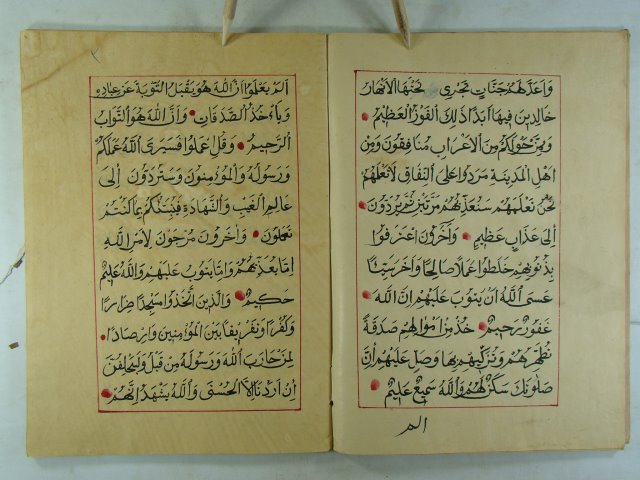 وَاَعَدَّ لَهُمْ جَنَّاتٍ تَجْرِى تَحْتَهَا الْاَنْهَارُ
خَالِدِينَ فِيهَا اَبَدًا ذٰلِكَ الْفَوْزُ الْعَظِيمُ
وَمِمَّنْ حَوْلَكُمْ مِنَ الْاَعْرَابِ مُنَافِقُونَ وَمِنْ
اَهْلِ الْمَدِينَةِ مَرَدُوا عَلَى النِّفَاقِ لَا تَعْلَمُهُمْ
نَحْنُ نَعْلَمُهُمْ سَنُعَذِّبُهُمْ مَرَّتَيْنِ ثُمَّ يُرَدُّونَ
اِلَى عَذَابٍ عَظِيمٍ وَاٰخَرُونَ اعْتَرَفُوا
بِذُنُوبِهِمْ خَلَطُوا عَمَلًا صَالِحًا وَاٰخَرَ سَيِّئًا
عَسَى اللّٰهُ اَنْ يَتُوبَ عَلَيْهِمْ اِنَّ اللّٰهَ
غَفُورٌ رَحِيمٌ خُذْ مِنْ اَمْوَالِهِمْ صَدَقَةً
تُطَهِّرُهُمْ وَتُزَكِّيهِمْ بِهَا وَصَلِّ عَلَيْهِمْ اِنَّ
صَلٰوتَكَ سَكَنٌ لَهُمْ وَاللّٰهُ سَمِيعٌ عَلِيمٌ
الم
اَلَمْ يَعْلَمُوا اَنَّ اللّٰهَ هُوَ يَقْبَلُ التَّوْبَةَ عَنْ عِبَادِهِ
وَيَاْخُذُ الصَّدَقَاتِ وَاَنَّ اللّٰهَ هُوَ التَّوَّابُ
الرَّحِيمُ وَقُلِ اعْمَلُوا فَسَيَرَى اللّٰهُ عَمَلَكُمْ
وَرَسُولُهُ وَالْمُؤْمِنُونَ وَسَتُرَدُّونَ اِلَى
عَالِمِ الْغَيْبِ وَالشَّهَادَةِ فَيُنَبِّئُكُمْ بِمَا كُنْتُمْ
تَعْمَلُونَ وَاٰخَرُونَ مُرْجَوْنَ لِاَمْرِ اللّٰهِ
اِمَّا يُعَذِّبُهُمْ وَاِمَّا يَتُوبُ عَلَيْهِمْ وَاللّٰهُ عَلِيمٌ
حَكِيمٌ وَالَّذِينَ اتَّخَذُوا مَسْجِدًا ضِرَارًا
وَكُفْرًا وَتَفْرِيقًا بَيْنَ الْمُؤْمِنِينَ وَاِرْصَادًا
لِمَنْ حَارَبَ اللّٰهَ وَرَسُولَهُ مِنْ قَبْلُ وَلَيَحْلِفُنَّ
اِنْ اَرَدْنَا اِلَّا الْحُسْنَى وَاللّٰهُ يَشْهَدُ اِنَّهُمْ